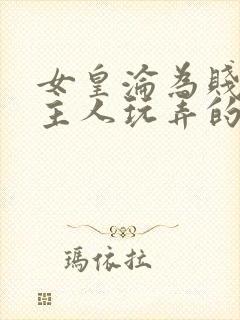 女皇淪為賤
主人玩弄的
瑪依拉